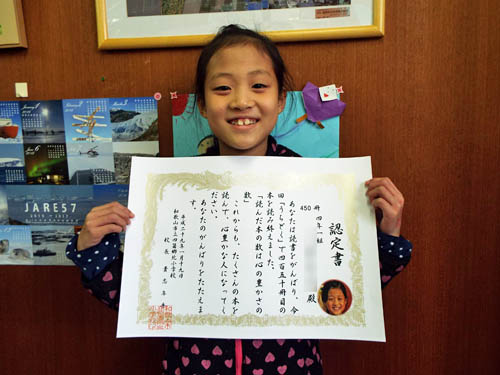 認定書
450 冊 四年一組
殿
あなたは読書をがんばり、今
回「うちどく」で四百五十冊目の
本を読み終えました。
「読んだ本の数は心の豊かさの
数」
これからも、たくさんの本を
読んで、心豊かな人になってく
ださい。
あなたのがんばりをたたえま
す。
平成二十九年
和歌山市立四箇郷北小学校
校長
JARE57
2015 - 2017